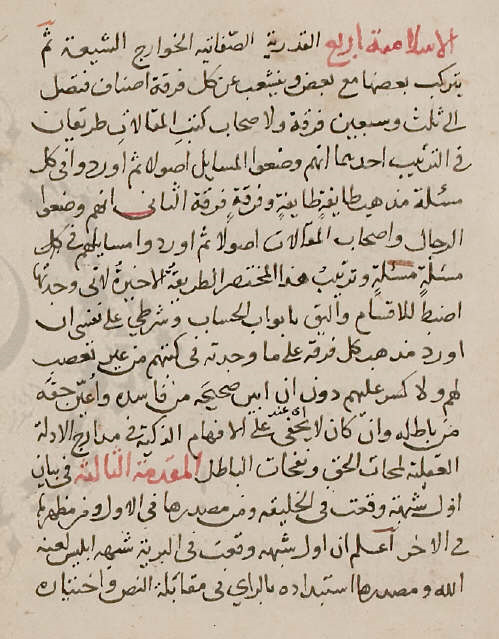 الاسلامية اربع القدرية الصفاتيه الخوارج الشيعة ثم
يتركب بعضها مع بعض ويتشعب عن كل فرقة اصناف فتصل
الى ثلث وسبعين فرقة ولاصحاب كتب المقالات طريقان
في الترتيب احديهما انهم وضعوا المسايل اصولا ثم اوردوا في كل
مسئلة مذهب طايفةٍ طايفةٍ وفرقةٍ فرقة الثانى انهم وضعوا
الرجال واصحاب المقالات اصولا ثم اوردوا مسايلهم في كل
مسئلةٍ مسئلةٍ وترتيبُ هذا المختصر الطريقةُ الاخيرةُ لانى وجدتها
اضبط للاقسام واليق بابواب الحساب وشرطي على نفسى ان
اورد مذهب كل فرقة على ما وجدته في كتبهم من غير تعصب
لهم ولا كسر عليهم دون ان ابين صحيحَه من فاسده واُعيّن حقَه
من باطله وان كان لا يخفى عند على الافهام الذكية في مدارج الادلة
العقلية لمحات الحق ونفحات الباطل المقدمة الثالثة في بيان
اول شبهة وقعت في الخليقه ومن مصدرها في الاول ومن مظهرها
في الاخر اعلم ان اول شبهه وقعت في البرية شبهه ابليس لعنه
الله ومصدرها استبداده بالراي في مقابلة النص واختياره